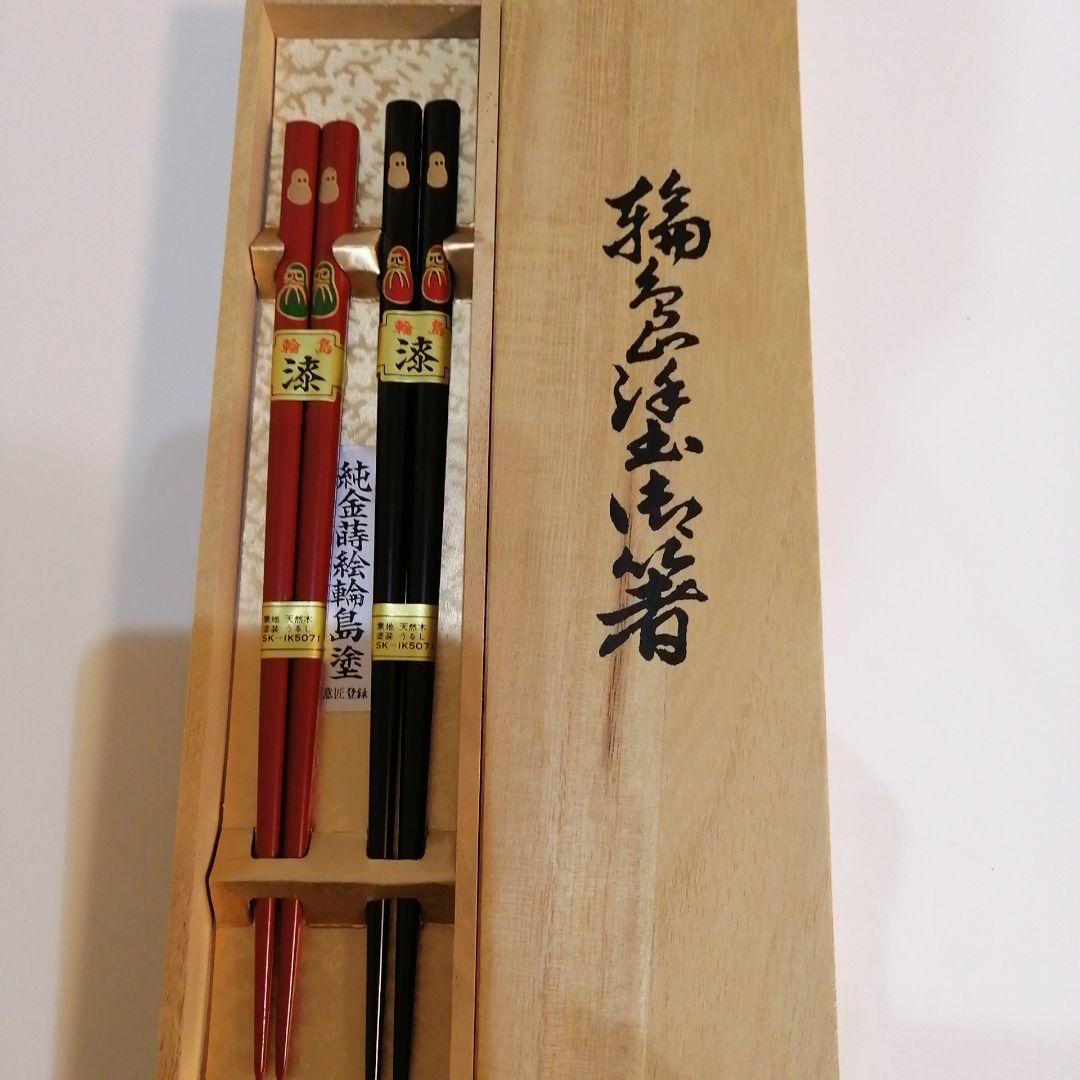 輪島塗御箸
輪島
漆
輪島
漆
純金蒔絵輪島塗
意匠登録
素地 天然木
塗装 うるし
SK-IK5071
素地 天然木
塗装 うるし
SK-IK5071